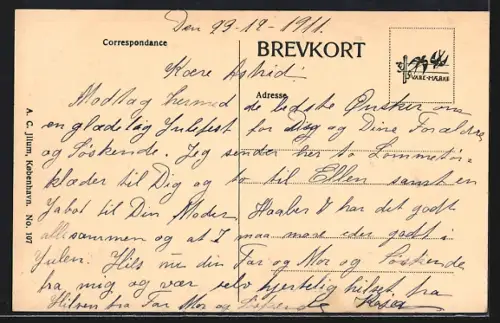 Den 23-12-1911.
Correspondance
BREVKORT
VARE-MÆRKE
Kære Astrid!
Adresse
Modtag hermed de bedste Ønsker om
en glædelig Julefest for Dig og Dine Forældre
og Søskende. Jeg sender her to Lommetør-
klæder til Dig og to til Ellen samt en
Jabot til Din Moder. Haaber I har det godt
allesammen og at I maa more eder godt i
Julen. Hils nu din Far og Mor og Søskende
fra mig og vær selv hjertelig hilset fra
Hilsen fra Far Mor og Søskende
A. C. Illum, København. No. 107